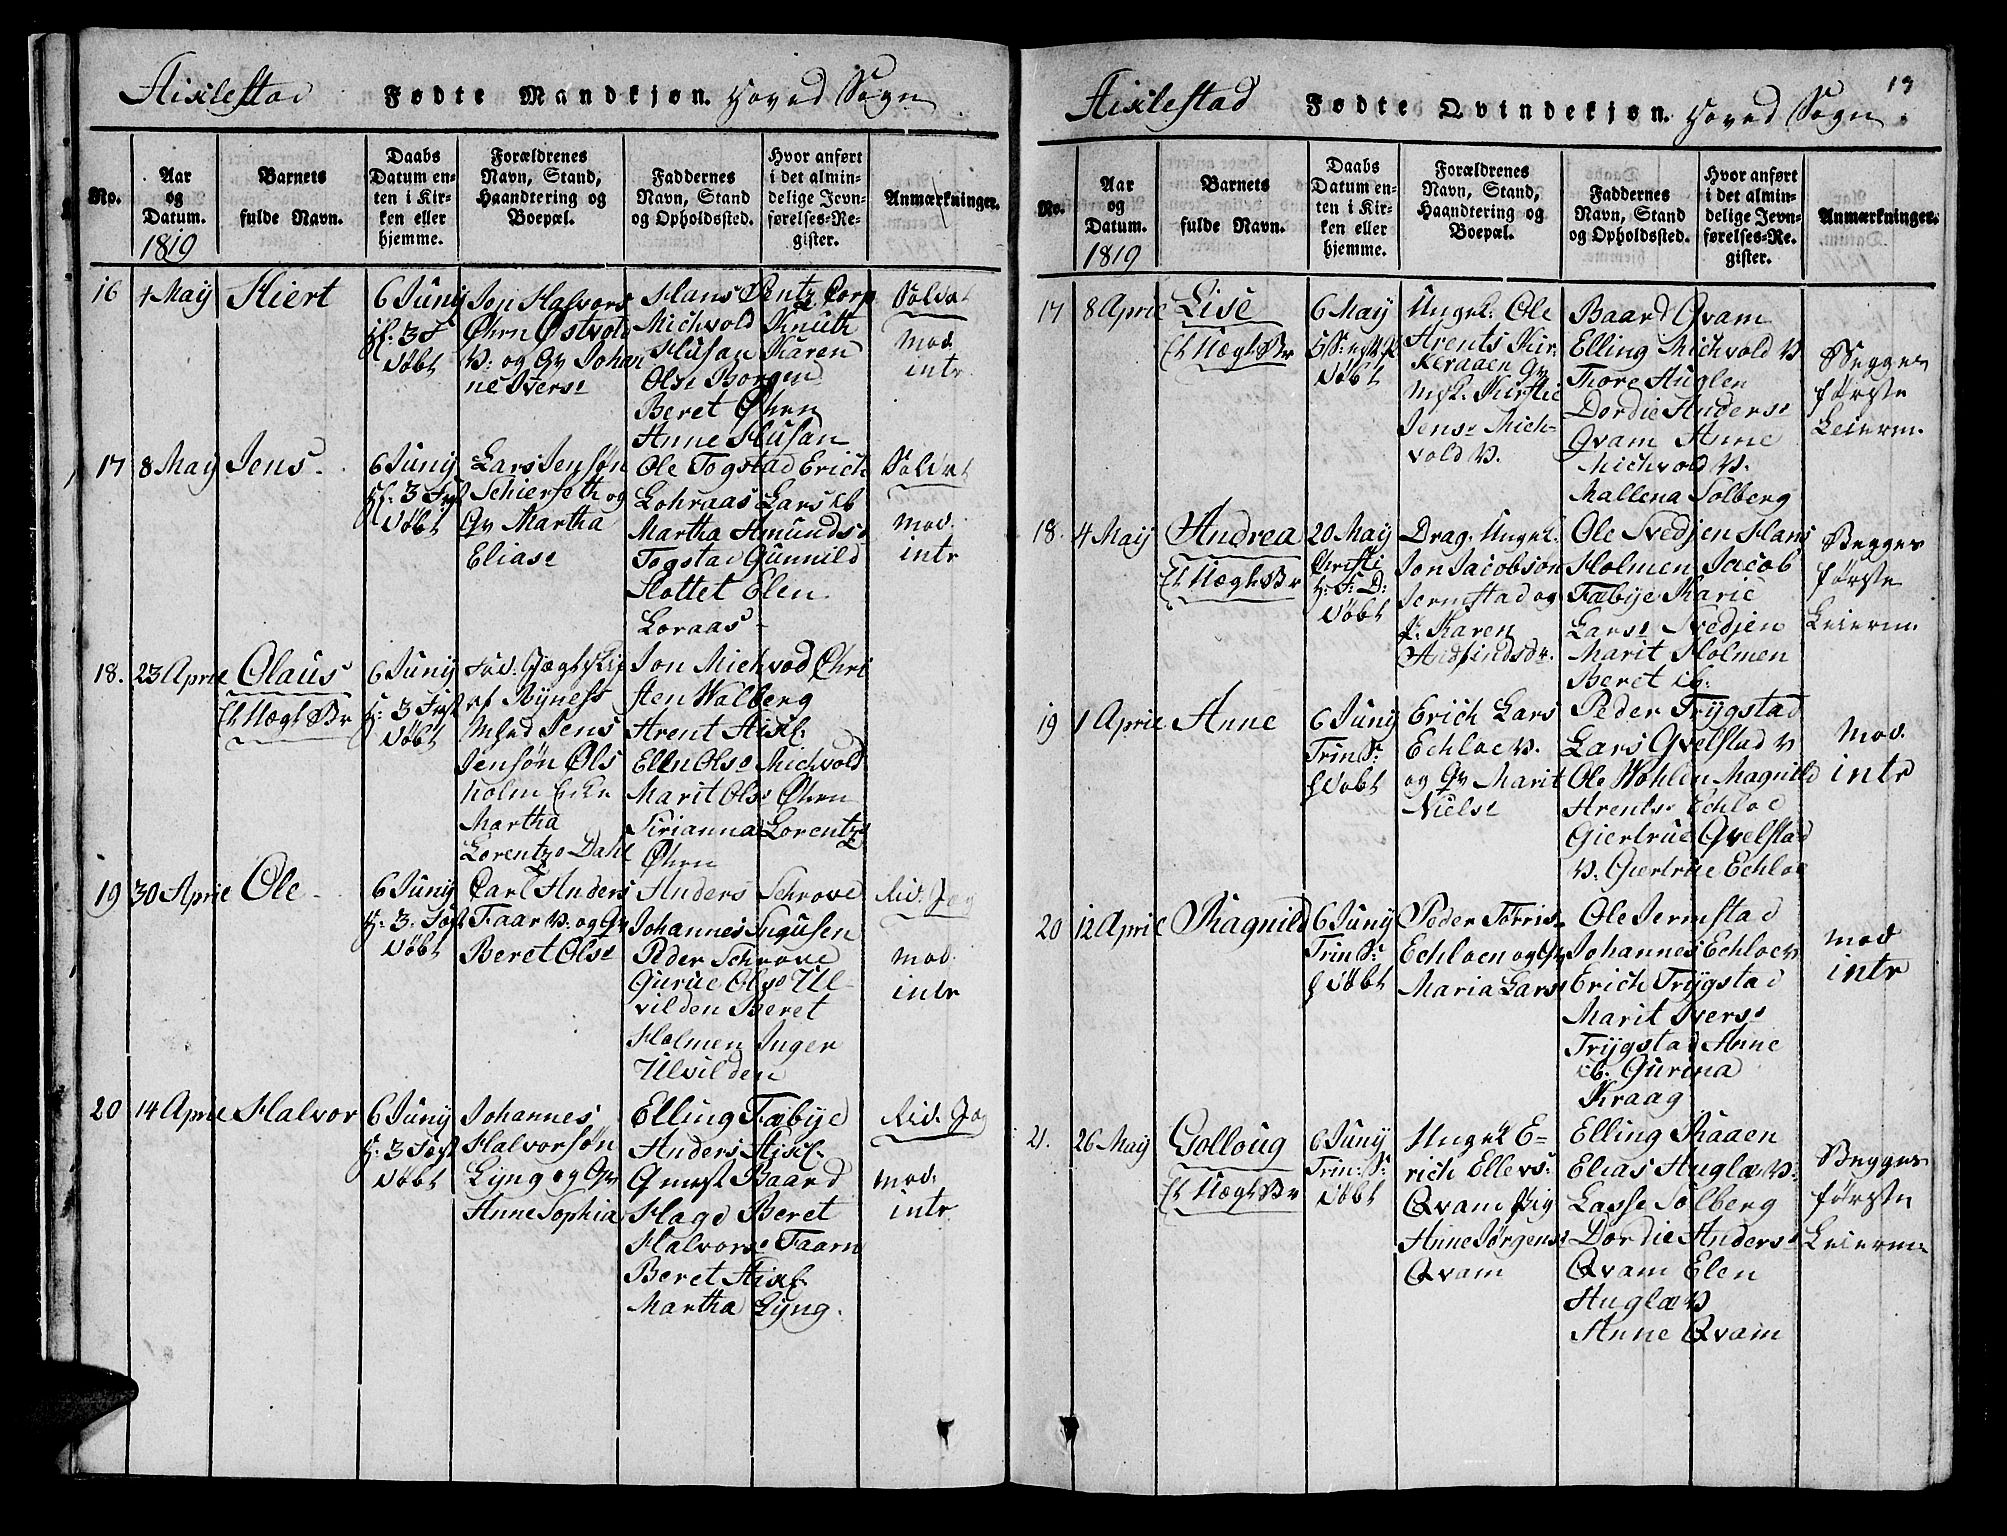 Aixlestad Fødte Mandkjøn. Hoved Sogn
No.
Aar
og
Datum.
1819
Barnets
fulde Navn.
Daabs
Datum en-
ten i Kir-
ken eller
hjemme.
Forældrenes
Navn, Stand,
Haandtering og
Boepæl.
Faddernes
Navn, Stand
og Opholdssted.
Hvor anført
i det almin-
delige Jevn-
førelses-Re-
gister.
Anmærkninger.
16
4 May
Hiert
6 Juny
3 S
døbt
Jon Halvors
Øhrn Østvold
V: og Gv Johan
ne Ivers
Hans Øentz Corp
Michvold Knuth
Husan Karen
Ols Borgen
Beret Øhrn
Anne Husan
Soldat
mod.
intr.
17
8 May
Jens
6 Juny
3 Fest
døbt
Lars Jensøn
Schierseth og
Gv Martha
Elias
Ole Togstad Erich
Lohraas Lars ib
Martha Amunds
Togstad Gunnild
Slottet Elen
Loraas
Soldat
mod.
intr
18.
23 April
Olaus
Et Uægt Br
6 Juny
3 Fest
døbt
Jens
Jensøn Øls
holm Enke
Martha
Lorentz Dahl
Jon Michvod Chri
sten Walberg
Arent Aixl.
Ellen Ols Michvold
Marit Ols Øhrn
Sirianna Lorentz
Øhrn
19
30 April
Ole
6 Juny
3. Fest
døbt
Carl Anders
Faar V: og Gv
Beret Ols
Anders Schrove
Johannes Ingusen
Peder Schrove
Gurue Ols Ul-
vilden Beret
Holmen Inger
Ulvilden
Rid: Jæg
mod.
intr
20
14 April
Halvor
6 Juny
3 Fest
døbt
Johannes
Halvorsøn
Lyng og Gv
Anne Sophia
Elling Fæbye
Anders Aixl.
Qvernst Baard
Hage Beret
Halvors Faarn
Beret Aixl.
Martha Lyng.
Rid. Jæg
mod.
intr
13
Aixlestad Fødte Qvindekjøn. Hoved Sogn.
No.
Aar
og
Datum.
1819
Barnets
fulde Navn.
Daabs
Datum en-
ten i Kir-
ken eller
hjemme.
Forældrenes
Navn, Stand,
Haandtering og
Boepæl.
Faddernes
Navn, Stand
og Opholdssted.
Hvor anført
i det almin-
delige Jevn-
førelses-Re-
gister.
Anmærkninger.
17
8 April
Lise
Et Uægt Br
6 May
døbt
Ungk. Ole
Arents Kir
Keraaen Gv
Kirstie
Jens Mich-
vold V.
Baard Qvam
Elling Michvold V
Thore Huglen
Dordie Anders
Qvam Anne
Michvold V.
Mallena Solberg
Begges
første
Leierm.
18.
4 May
Andrea
Et Uægt Br
20 May
Christi
H: F: D:
døbt
Drag. Ungk.
Jon Jacobsøn
Jermstad og
P. Karen
Andfindsd.
Ole Svedjen Hans
Holmen Jacob
Fæbye Marie
Lars Svedjen
Marit Holmen
Beret ig:
Begges
første
Leierm.
19
1 April
Anne
6 Juny
Trin. S:
døbt
Erich Lars
Echloe V.
og Gv Marit
Niels
Peder Trygstad
Lars Qvelstad V
Ole Wohlen Magnild
Arents Echloe
Giertrue Qvelstad
V. Giertrue Echloe
mod.
intr
20
12 April
Ragnild
6 Juny
Trin S:
døbt
Peder Torris
Echloen og Gv
Maria Lars
Ole Jermstad
Johannes Echloe V
Erich Trygstad
Marit Ivers
Trygstad Anne
ib. Gurina
Kraag
mod
intr
21.
26 May
Golloug
Et Uægt Br
6 Juny
Trin: S:
døbt
Ungk E-
rich Ellevs:
Qvam Pig
Anne Jørgens
Qvam
Elling Raaen
Elias Huglæ V:
Lasse Solberg
Dordie Anders
Qvam Elen
Huglæ V
Anne Qvam
Begges
første
Leierm.